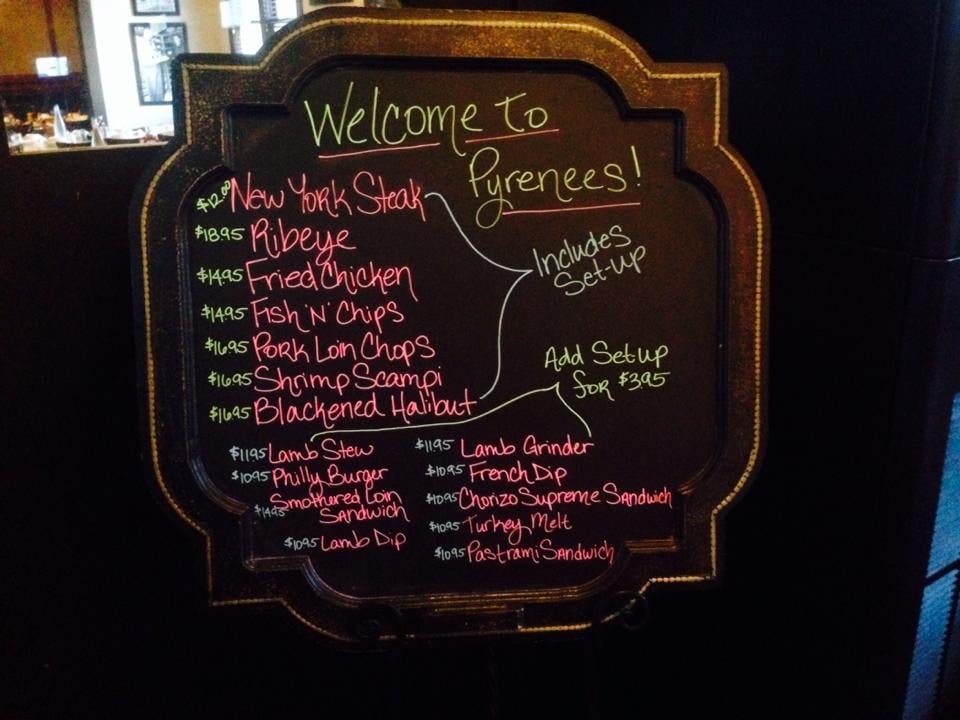 Welcome To
Pyrenees!
$12.00 New York Steak
$18.95 Ribeye
$14.95 Fried Chicken
$14.95 Fish N' Chips
$16.95 Pork Loin Chops
$16.95 Shrimp Scampi
$16.95 Blackened Halibut
Includes
Set-up
Add Set up
for $3.95
$11.95 Lamb Stew
$10.95 Philly Burger
Smothered Loin
$14.95 Sandwich
$10.95 Lamb Dip
$11.95 Lamb Grinder
$10.95 French Dip
$10.95 Chorizo Supreme Sandwich
$10.95 Turkey Melt
$10.95 Pastrami Sandwich